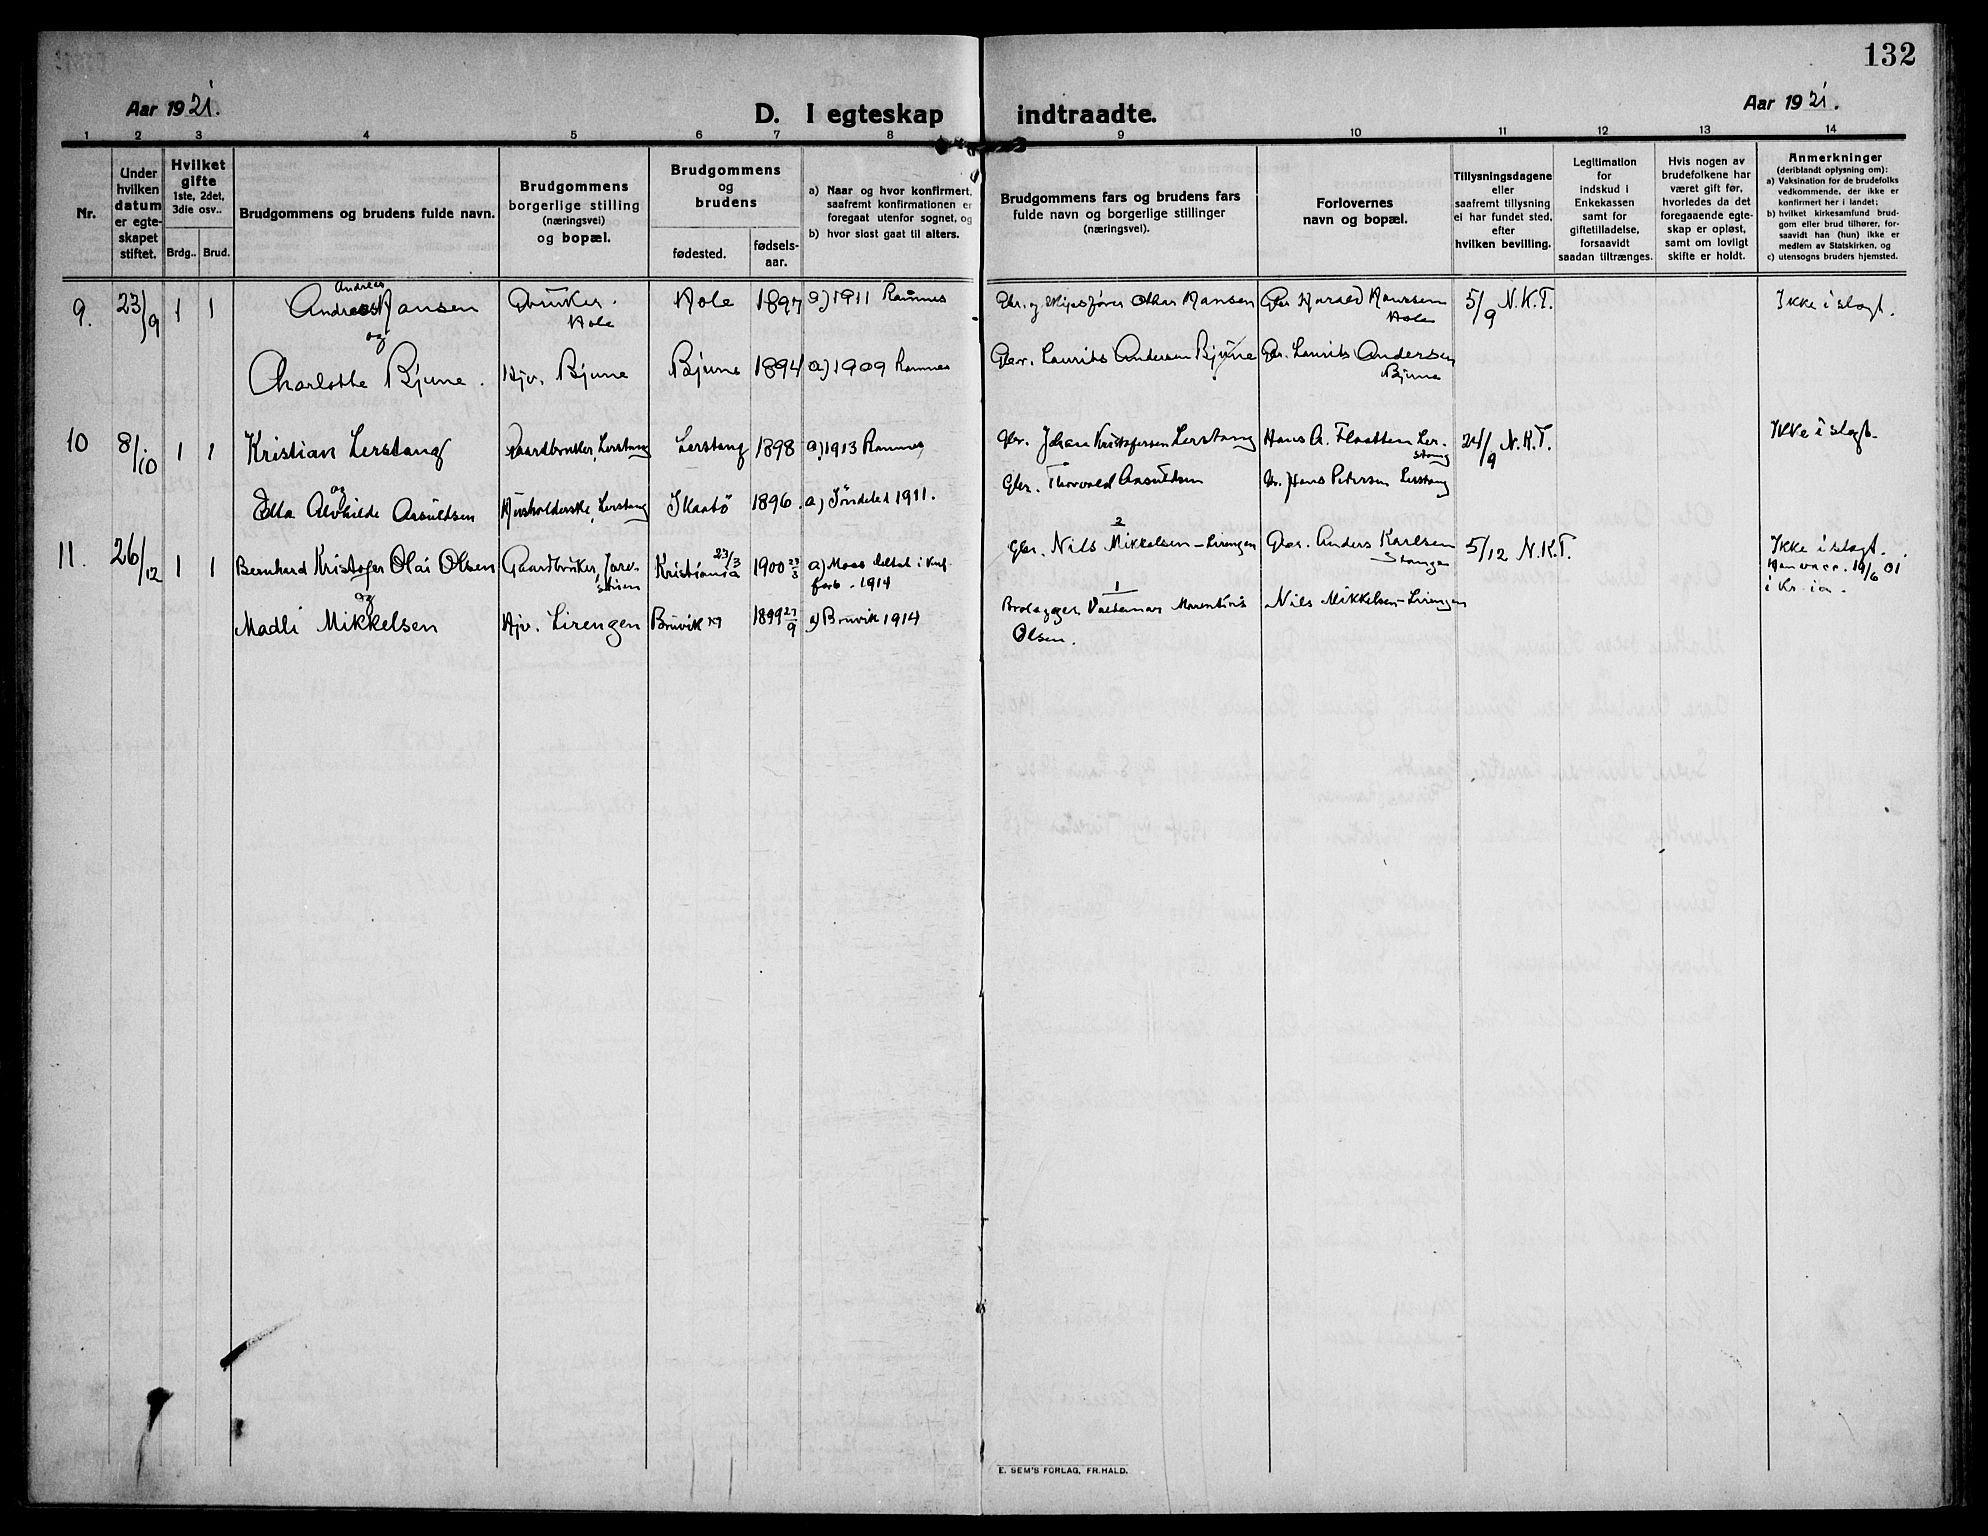 132
Aar 1921.
D. I egteskap indtraadte.
Aar 1921.
1 2 3 4 5 6 7 8 9 10 11 12 13 14
Nr.
Under hvilken datum er egteskapet stiftet.
Hvilket gifte 1ste, 2det, 3die osv..
Brdg.. Brud.
Brudgommens og brudens fulde navn.
Brudgommens borgerlige stilling (næringsvei) og bopæl.
Brudgommens og brudens
fødested.
fødsels-aar.
a) Naar og hvor konfirmert, saafremt konfirmationen er foregaat utenfor sognet, og
b) hvor sidst gaat til alters.
Brudgommens fars og brudens fars fulde navn og borgerlige stillinger (næringsvei).
Forlovernes navn og bopæl.
Tillysningsdagene eller saafremt tillysning ei har fundet sted, efter hvilken bevilling.
Legitimation for indskud i Enkekassen samt for giftetilladelse, forsaavidt saadan tiltrænges.
Hvis nogen av brudefolkene har været gift før, hvorledes da det foregaaende egteskap er opløst, samt om lovligt skifte er holdt.
Anmerkninger (deriblandt oplysning om):
a) Vaksination for de brudefolks vedkommende, der ikke er konfirmert her i landet;
b) hvilket kirkesamfund brudgom eller brud tilhører, forsaavidt han (hun) ikke er medlem av Statskirken, og
c) utensogns bruders hjemsted.
9. 23/9 1 1 Andreas Hansen Gbruker. Hole Hole 1897 a) 1911 Ramnes Gbr. og Othar Hansen Gbr Harald Hanssen Hole 5/9 N.K.T. Ikke i slegt.
og
Charlotte Bjune. Hjv. Bjune Bjune 1894 a) 1909 Ramnes Gbr. Laurits Andersen Bjune Gbr. Laurits Andersen Bjune
10 8/10 1 1 Kristian Lerstang Gaardbruker, Lerstang Lerstang 1898 a) 1913 Ramnes Gbr. Johan Kristofersen Lerstang Hans A. Flaatten Lerstang 24/9 N.K.T. Ikke i slegt.
og
Ella Alvhilde Aasuldsen Husholderske, Lerstang Skaatø 1896. a) Søndeled 1911. Gbr. Thorvald Aasuldsen Gbr. Hans Petersen Lerstang
11. 26/12 1 1 Bernhard Kristofer Olai Olsen Gaardbruker, Kristiania 23/3 1900 23/3 a) Moss 1914 2 Gbr. Nils Mikkelsen - Lirengen Gbr. Anders Karlsen Stange 5/12 N.K.T. Ikke i slegt.
Han vacc. 19/6 01 i Kr-ia.
og
Madli Mikkelsen Hjv. Lirengen Bruvik 1899 27/9 a) Bruvik 1914 1 Brolegger Valdemar Olsen. Nils Mikkelsen - Lirengen
E. SEM'S FORLAG, FR.HALD.